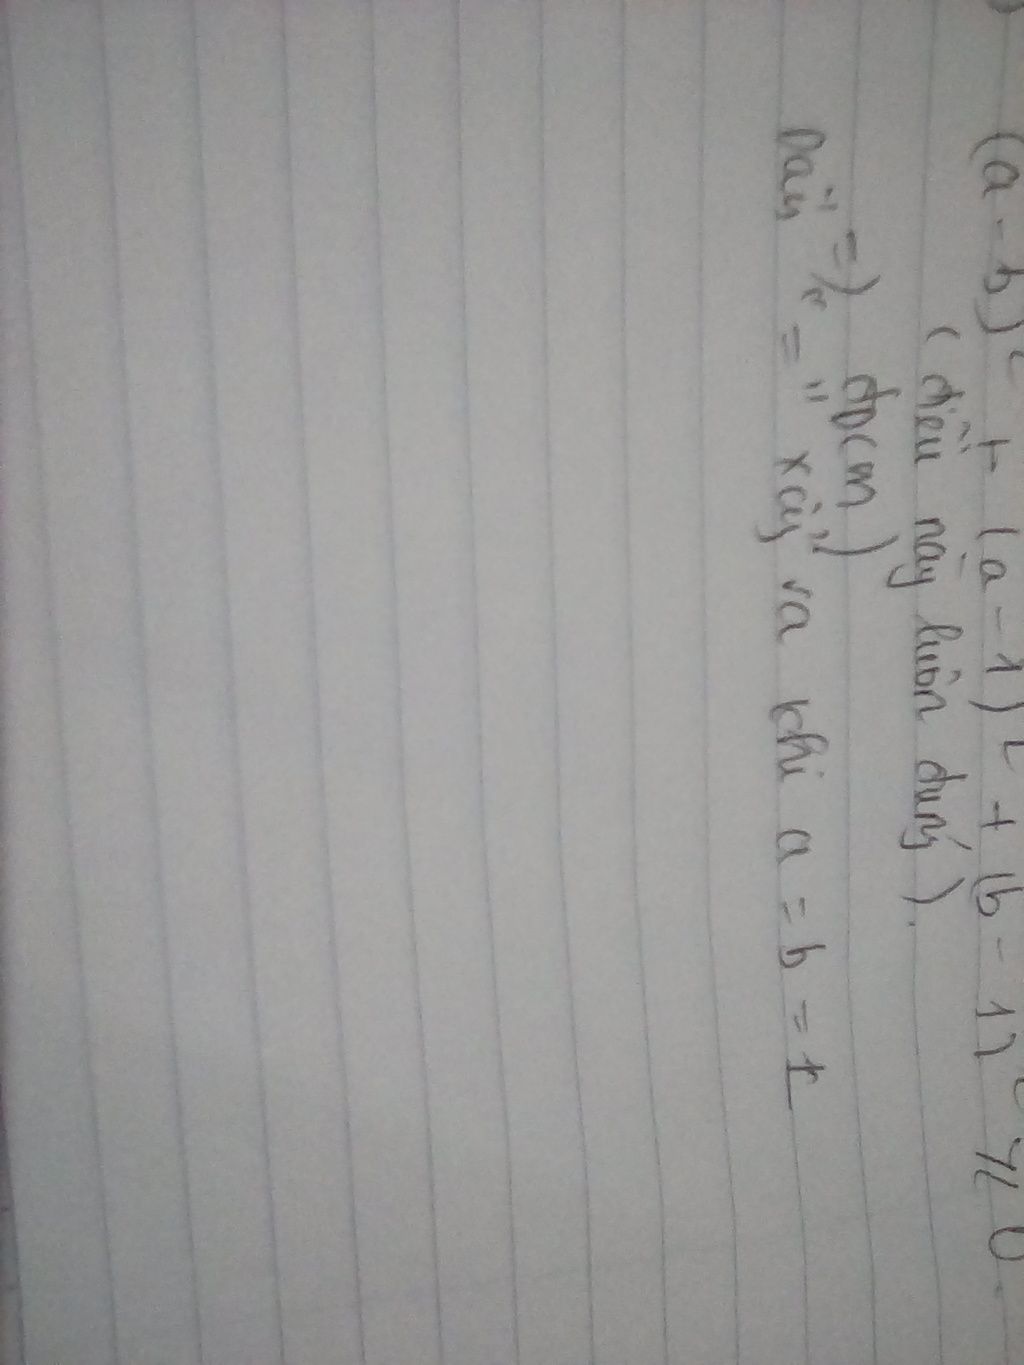 (a-b)² + (a-1)² + (b-1)² ≥ 0
(điều này luôn đúng).
=> đpcm)
Dấu "=" xảy ra khi a = b = 1